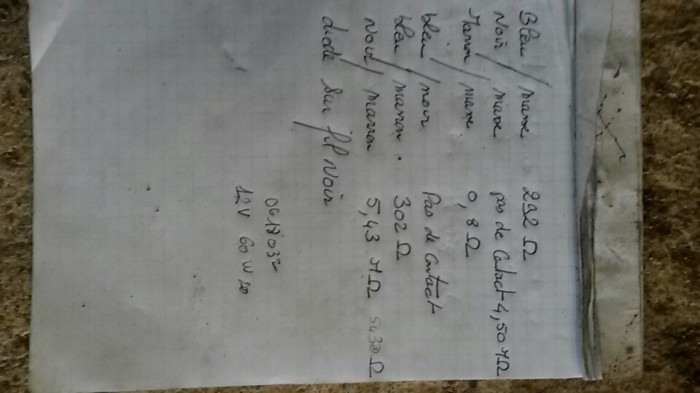 Bleu / masse 292 Ω
Noir / masse pas de Contact 4,50 MΩ
Marron / masse 0,8 Ω
bleu / noir Pas de contact
bleu / marron. 302 Ω
Noir / marron 5,43 MΩ 5430 Ω
diode sur fil Noir
0618032
12V 60W